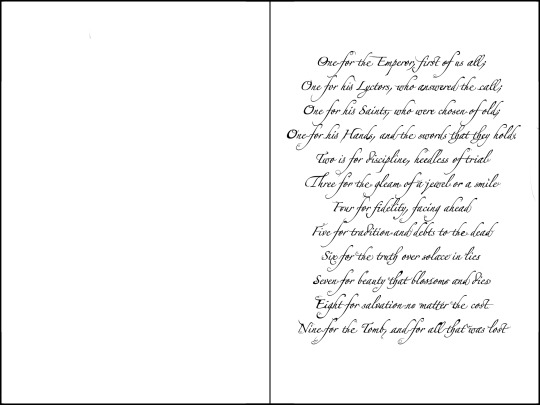 One for the Emperor, first of us all;
One for his Lyctors, who answered the call;
One for his Saints, who were chosen of old;
One for his Hands, and the swords that they hold.
Two is for discipline, heedless of trial
Three for the gleam of a jewel or a smile
Four for fidelity, facing ahead
Five for tradition and debts to the dead
Six for the truth over solace in lies
Seven for beauty that blossoms and dies
Eight for salvation no matter the cost
Nine for the Tomb, and for all that was lost